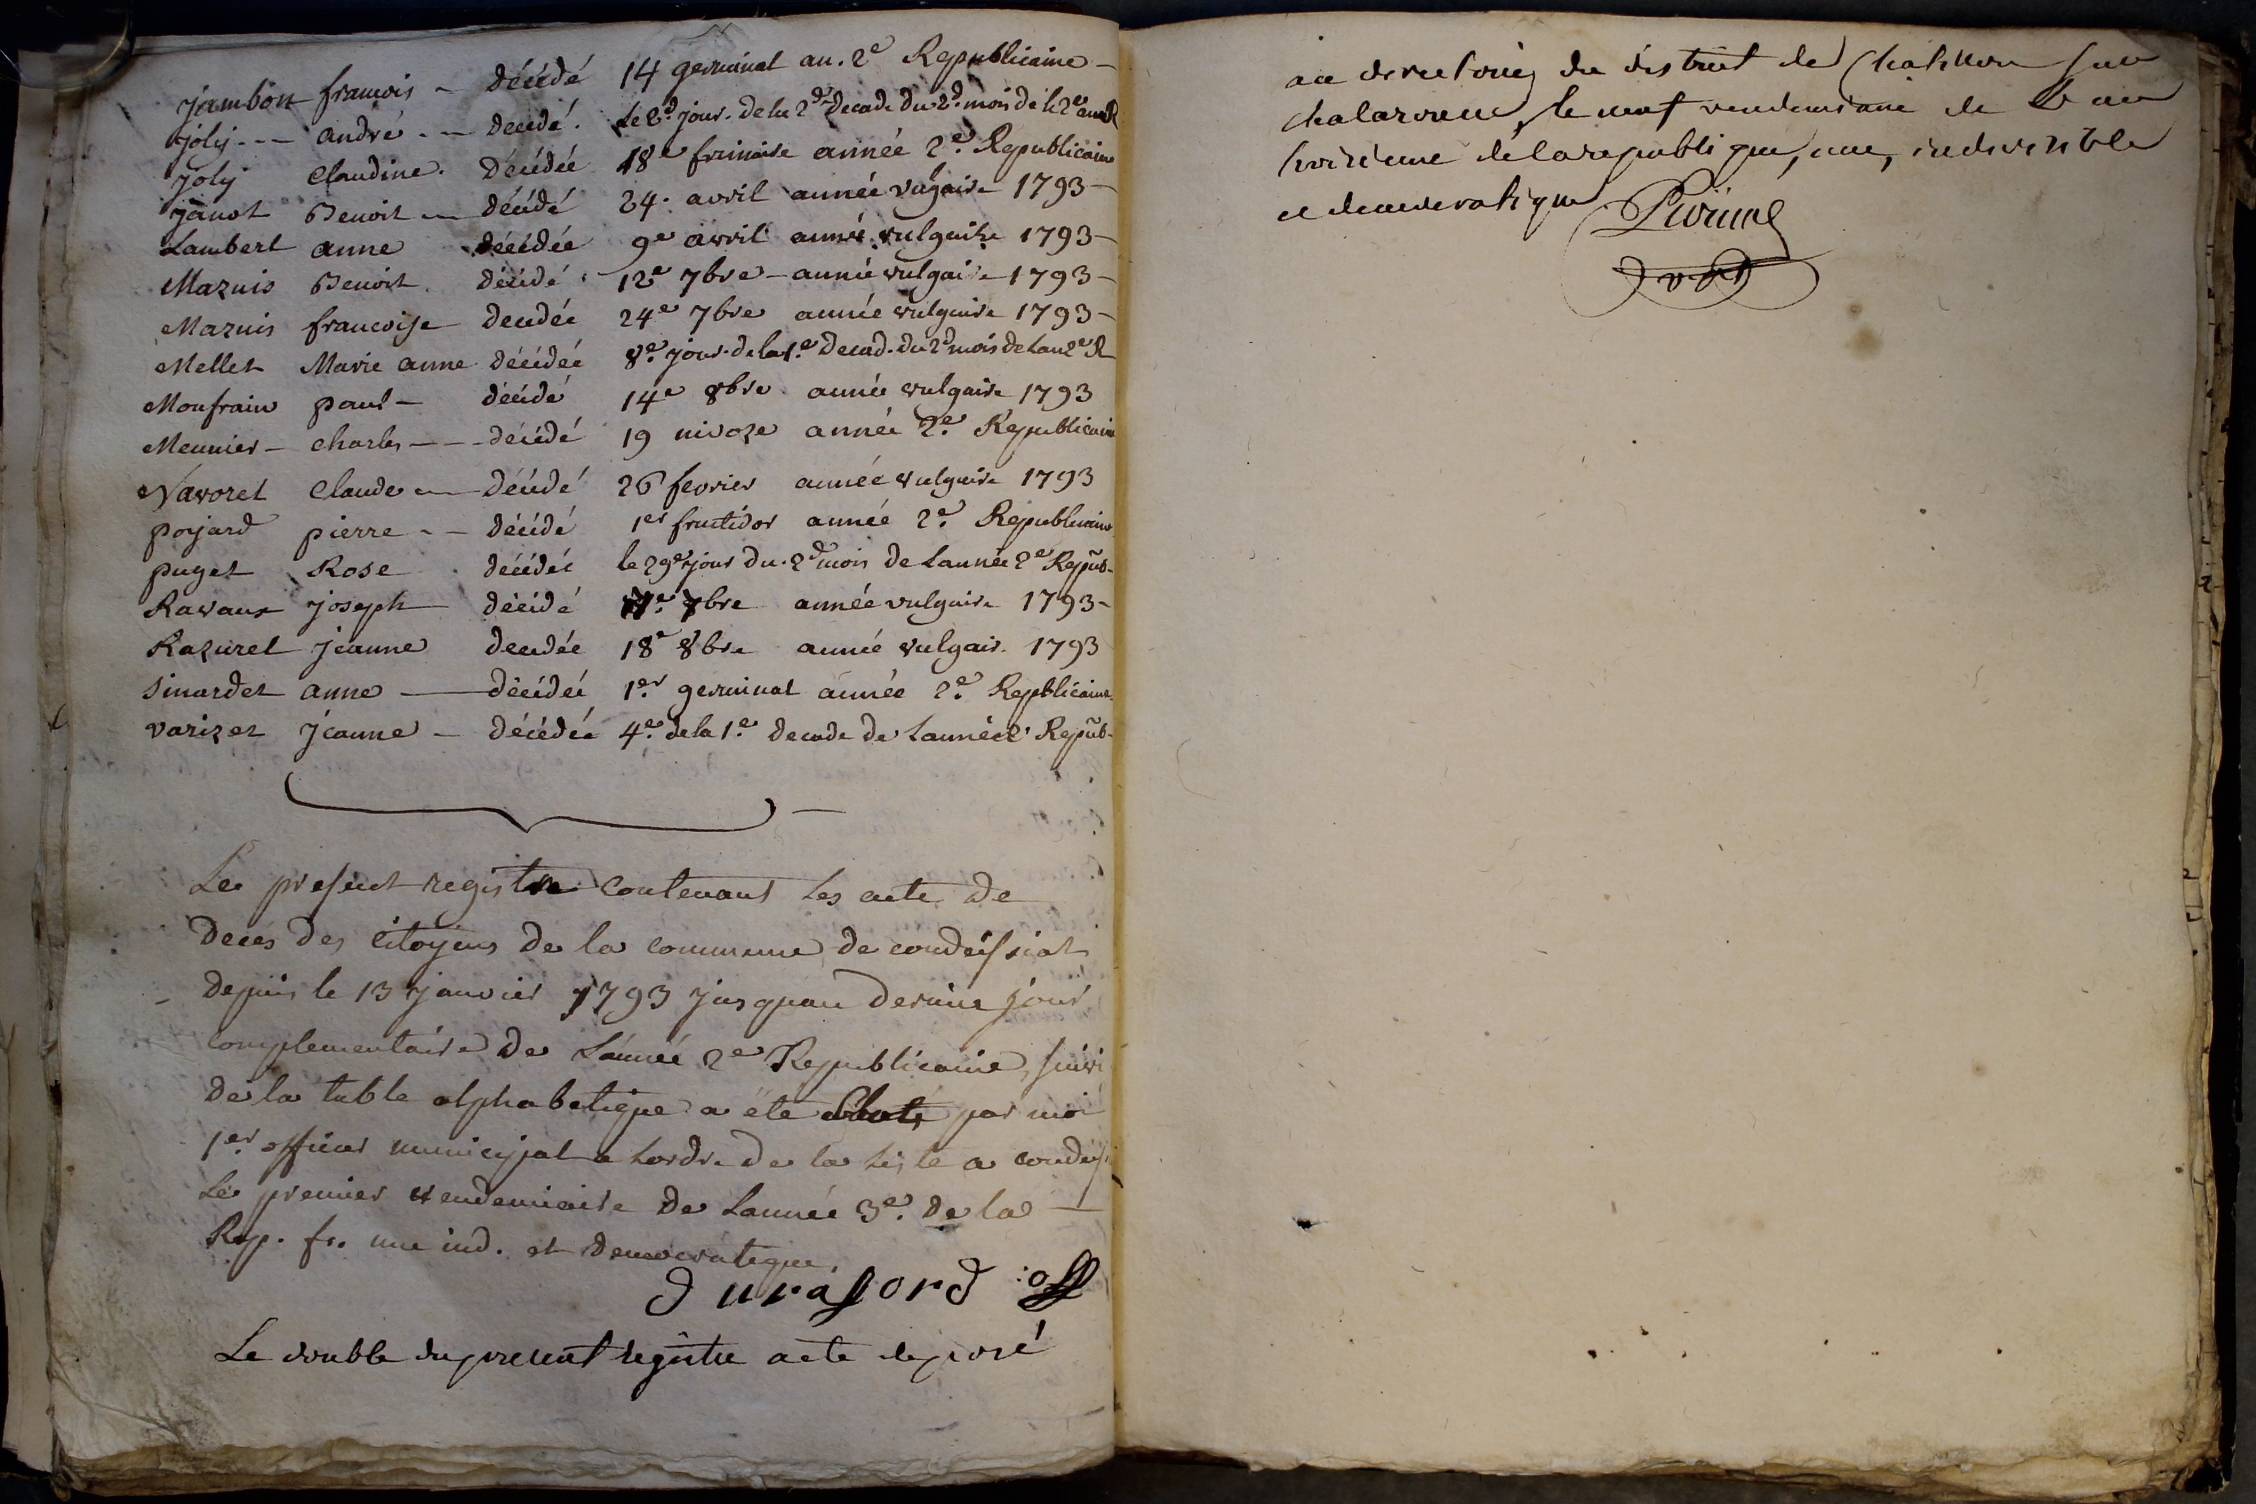 jambon francois - décédé 14 germinal an. 2e Republicaine -
joly --- andré -- decédé. Le 2d jour. de la 2de Decade du 2d. mois de l 2e année R
joly Claudine. Décédée 18e frimaire année 2e. Republicaine
janot Benoit -- décédé 24. avril année vulgaire 1793 -
Lambert anne décédée 9e avril année vulgaire 1793 -
Mazuis Benoit. décédé 12e 7bre - année vulgaire 1793 -
Mazuis francoise decedée 24e 7bre année vulgaire 1793 -
Mellet Marie anne décédée 8e. jour. de la 1.e Decad. du 2d mois de Lan 2e R
Monfrain paul - décédé 14e 8bre année vulgaire 1793
Meunier - Charles --- décédé 19 nivoze année 2e. Republicaine
Navoret Claude -- décédé 26 fevrier année vulgaire 1793
poyard pierre -- décédé 1er fructidor année 2e. Republicaine
puget Rose décédée le 29e jour du. 2d mois de Lannée 2e Repub-
Ravaux joseph décédé 7bre année vulgaire 1793 -
Razurel jeanne decedée 18e 8bre année vulgair. 1793
Sinardet anne --- décédée 1er. germinal année 2e. Republicaine
varizet jeanne - décédée 4e. de la 1.e decade de Lannée 2e Repub-
Le present registre contenant les acte de
decés des citoyens de la commune de condeissiat
depuis le 13 janvier 1793 jusquau dernier jour
complementaire de Lannée 2e Republicaine, suivi
de la table alphabetique a été par moi
1er. officier municipal a Lordre de la liste a condeissi
Le premier vendemiaire de Lannée 3e. de la
Rep. fr. une ind. et democratique.
Durafford off
Le double du present registre a ete deposé
au directoire du district de Chatillon sur
chalaronne, le neuf vendemiaire de l'an
troisieme de la republique, une, indivisible
et democratique